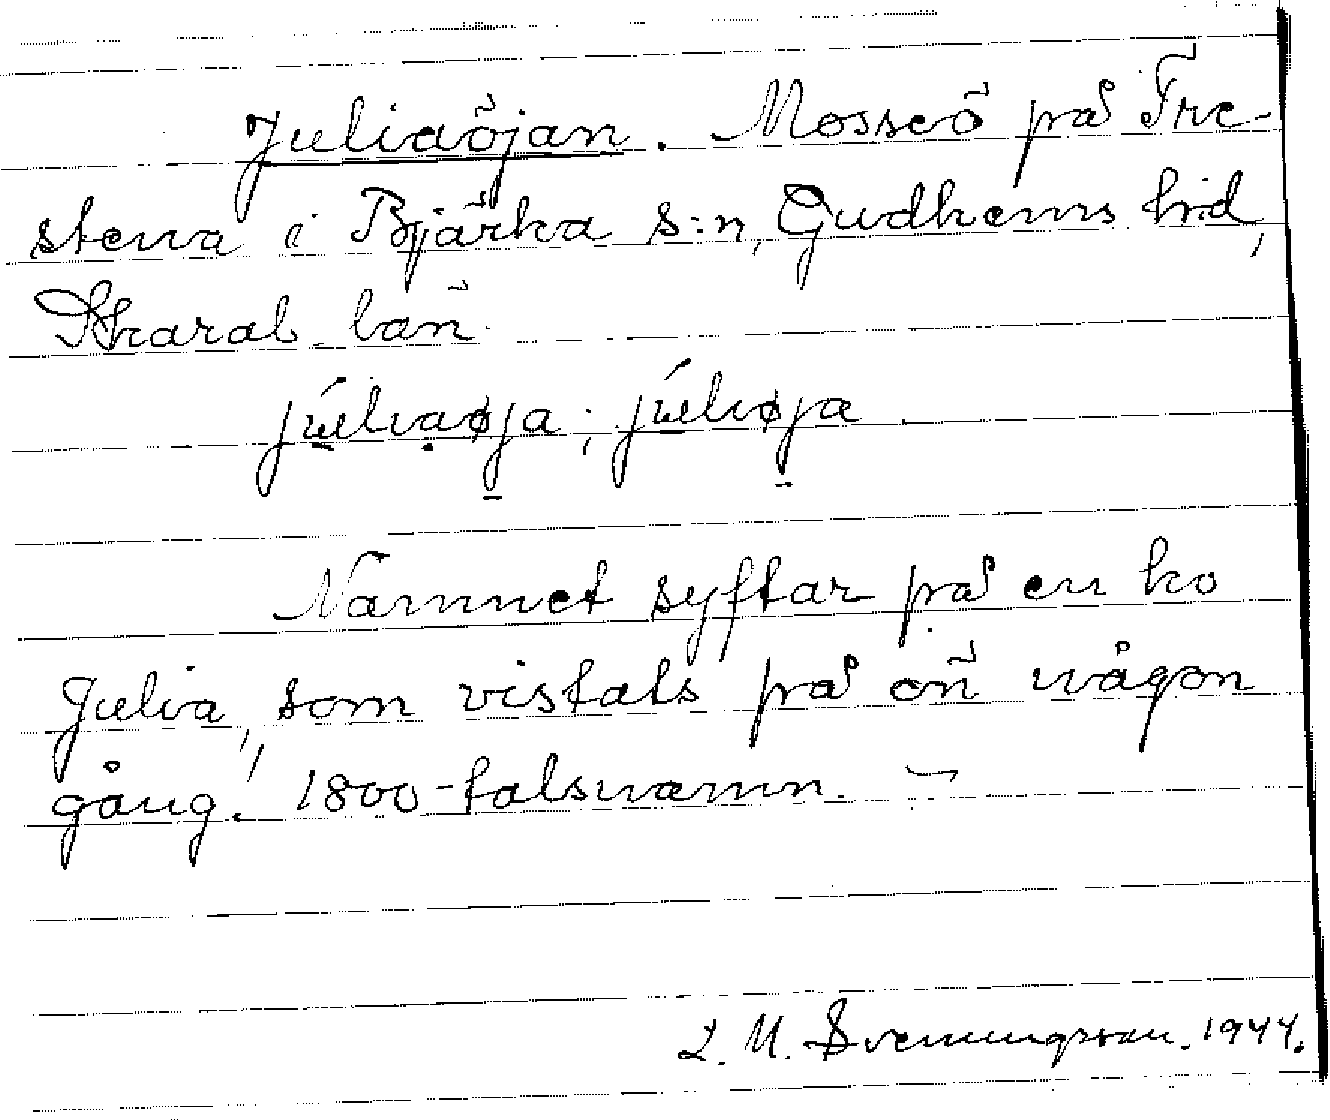 Juliaöjan. Mosseö på Tre-
stena i Bjärka s:n, Gudhems hd,
Skarab. län
júliaøja; júliøja
Namnet syftar på en ko
Julia, som vistats på ön någon
gång. 1800-talsnamn. –
L. M. Svenungsson. 1944.